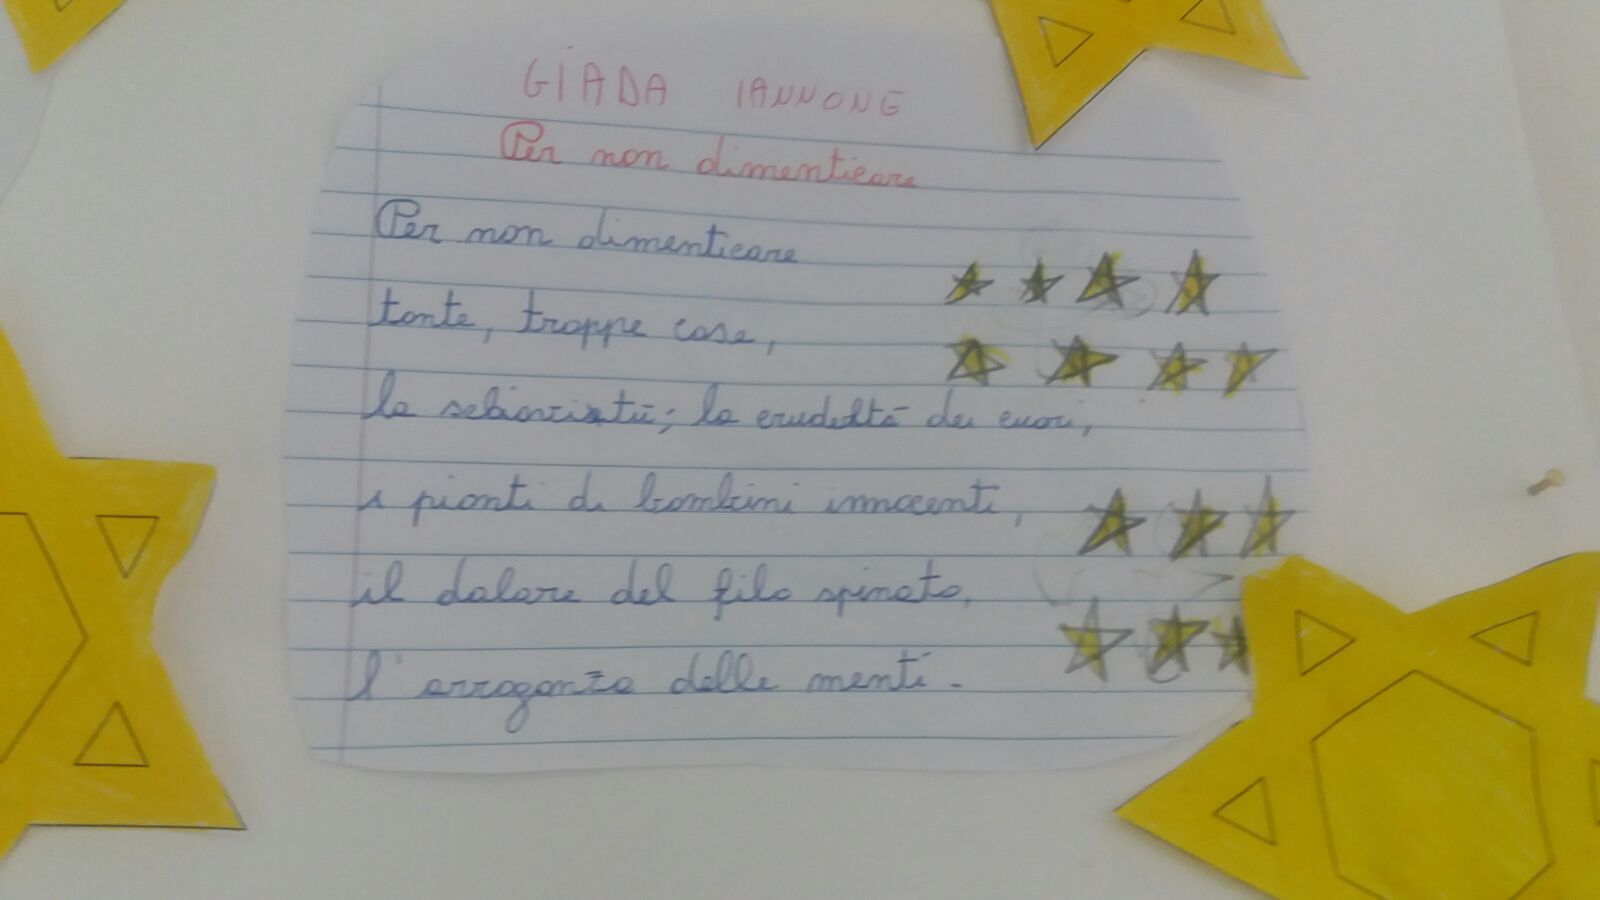 GIADA IANNONE
Per non dimenticare
Per non dimenticare
tante, troppe cose,
la schiavitù; la crudeltà dei cuori,
i pianti di bambini innocenti,
il dolore del filo spinato,
l'arroganza delle menti.